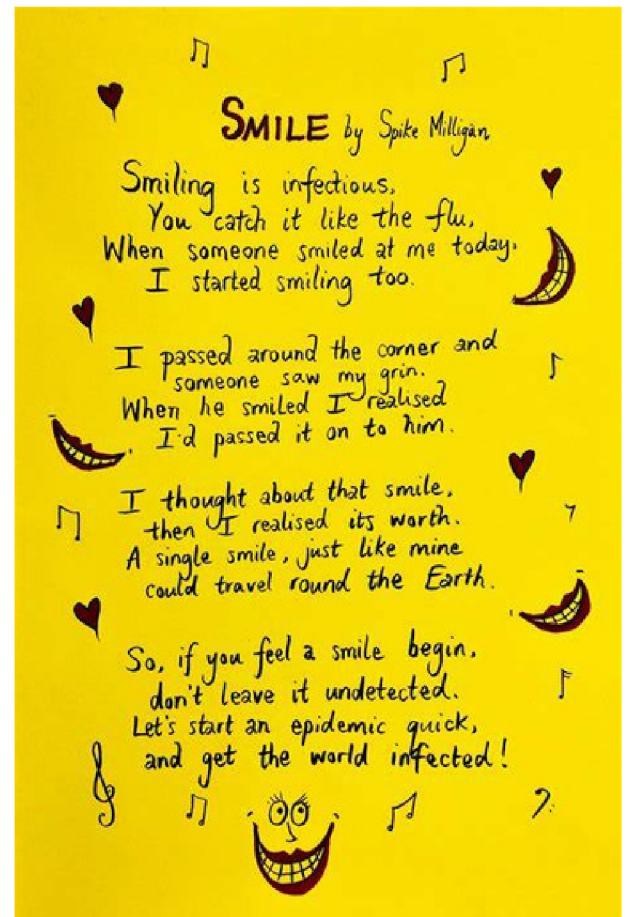 SMILE by Spike Milligan
Smiling is infectious,
You catch it like the flu,
When someone smiled at me today,
I started smiling too.
I passed around the corner and
someone saw my grin.
When he smiled I realised
I'd passed it on to him.
I thought about that smile,
then I realised its worth.
A single smile, just like mine
could travel round the Earth.
So, if you feel a smile begin,
don't leave it undetected.
Let's start an epidemic quick,
and get the world infected!